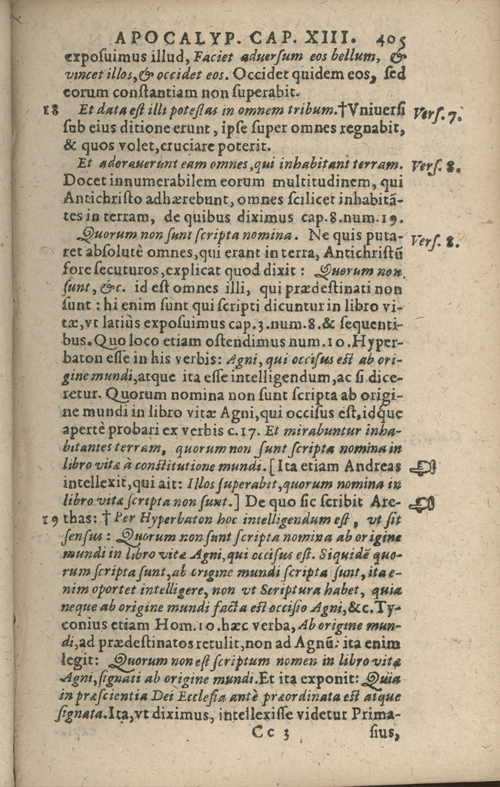 APOCALYP. CAP. XIII. 405
expoſuimus illud, Faciet aduerſum eos bellum, &
vincet illos, & occidet eos. Occidet quidem eos, ſed
eorum conſtantiam non ſuperabit.
18 Et data eſt illi poteſtas in omnem tribum. †Vniuerſi Verſ. 7.
ſub eius ditione erunt, ipſe ſuper omnes regnabit,
& quos volet, cruciare poterit.
Et adorauerunt eam omnes, qui inhabitant terram. Verſ. 8.
Docet innumerabilem eorum multitudinem, qui
Antichriſto adhærebunt, omnes ſcilicet inhabitā-
tes in terram, de quibus diximus cap. 8. num. 19.
Quorum non ſunt ſcripta nomina. Ne quis puta- Verſ. 8.
ret abſolutè omnes, qui erant in terra, Antichriſtū
fore ſecuturos, explicat quod dixit: Quorum non
ſunt, &c. id eſt omnes illi, qui prædeſtinati non
ſunt: hi enim ſunt qui ſcripti dicuntur in libro vi-
tæ, vt latiùs expoſuimus cap. 3. num. 8. & ſequenti-
bus. Quo loco etiam oſtendimus num. 10. Hyper-
baton eſſe in his verbis: Agni, qui occiſus eſt ab ori-
gine mundi, atque ita eſſe intelligendum, ac ſi dice-
retur. Quorum nomina non ſunt ſcripta ab origi-
ne mundi in libro vitæ Agni, qui occiſus eſt, idque
apertè probari ex verbis c. 17. Et mirabuntur inha-
bitantes terram, quorum non ſunt ſcripta nomina in
libro vitæ à conſtitutione mundi. [Ita etiam Andreas
intellexit, qui ait: Illos ſuperabit, quorum nomina in
libro vitæ ſcripta non ſunt.] De quo ſic ſcribit Are-
19 thas: † Per Hyperbaton hoc intelligendum eſt, vt ſit
ſenſus: Quorum non ſunt ſcripta nomina ab origine
mundi in libro vitæ Agni, qui occiſus eſt. Siquidē quo-
rum ſcripta ſunt, ab origine mundi ſcripta ſunt, ita e-
nim oportet intelligere, non vt Scriptura habet, quia
neque ab origine mundi facta eſt occiſio Agni, &c. Ty-
conius etiam Hom. 10. hæc verba, Ab origine mun-
di, ad prædeſtinatos retulit, non ad Agnū: ita enim
legit: Quorum non eſt ſcriptum nomen in libro vitæ
Agni, ſignati ab origine mundi. Et ita exponit: Quia
in præſcientia Dei Eccleſia antè præordinata eſt atque
ſignata. Ita, vt diximus, intellexiſſe videtur Prima-
Cc 3 ſius,